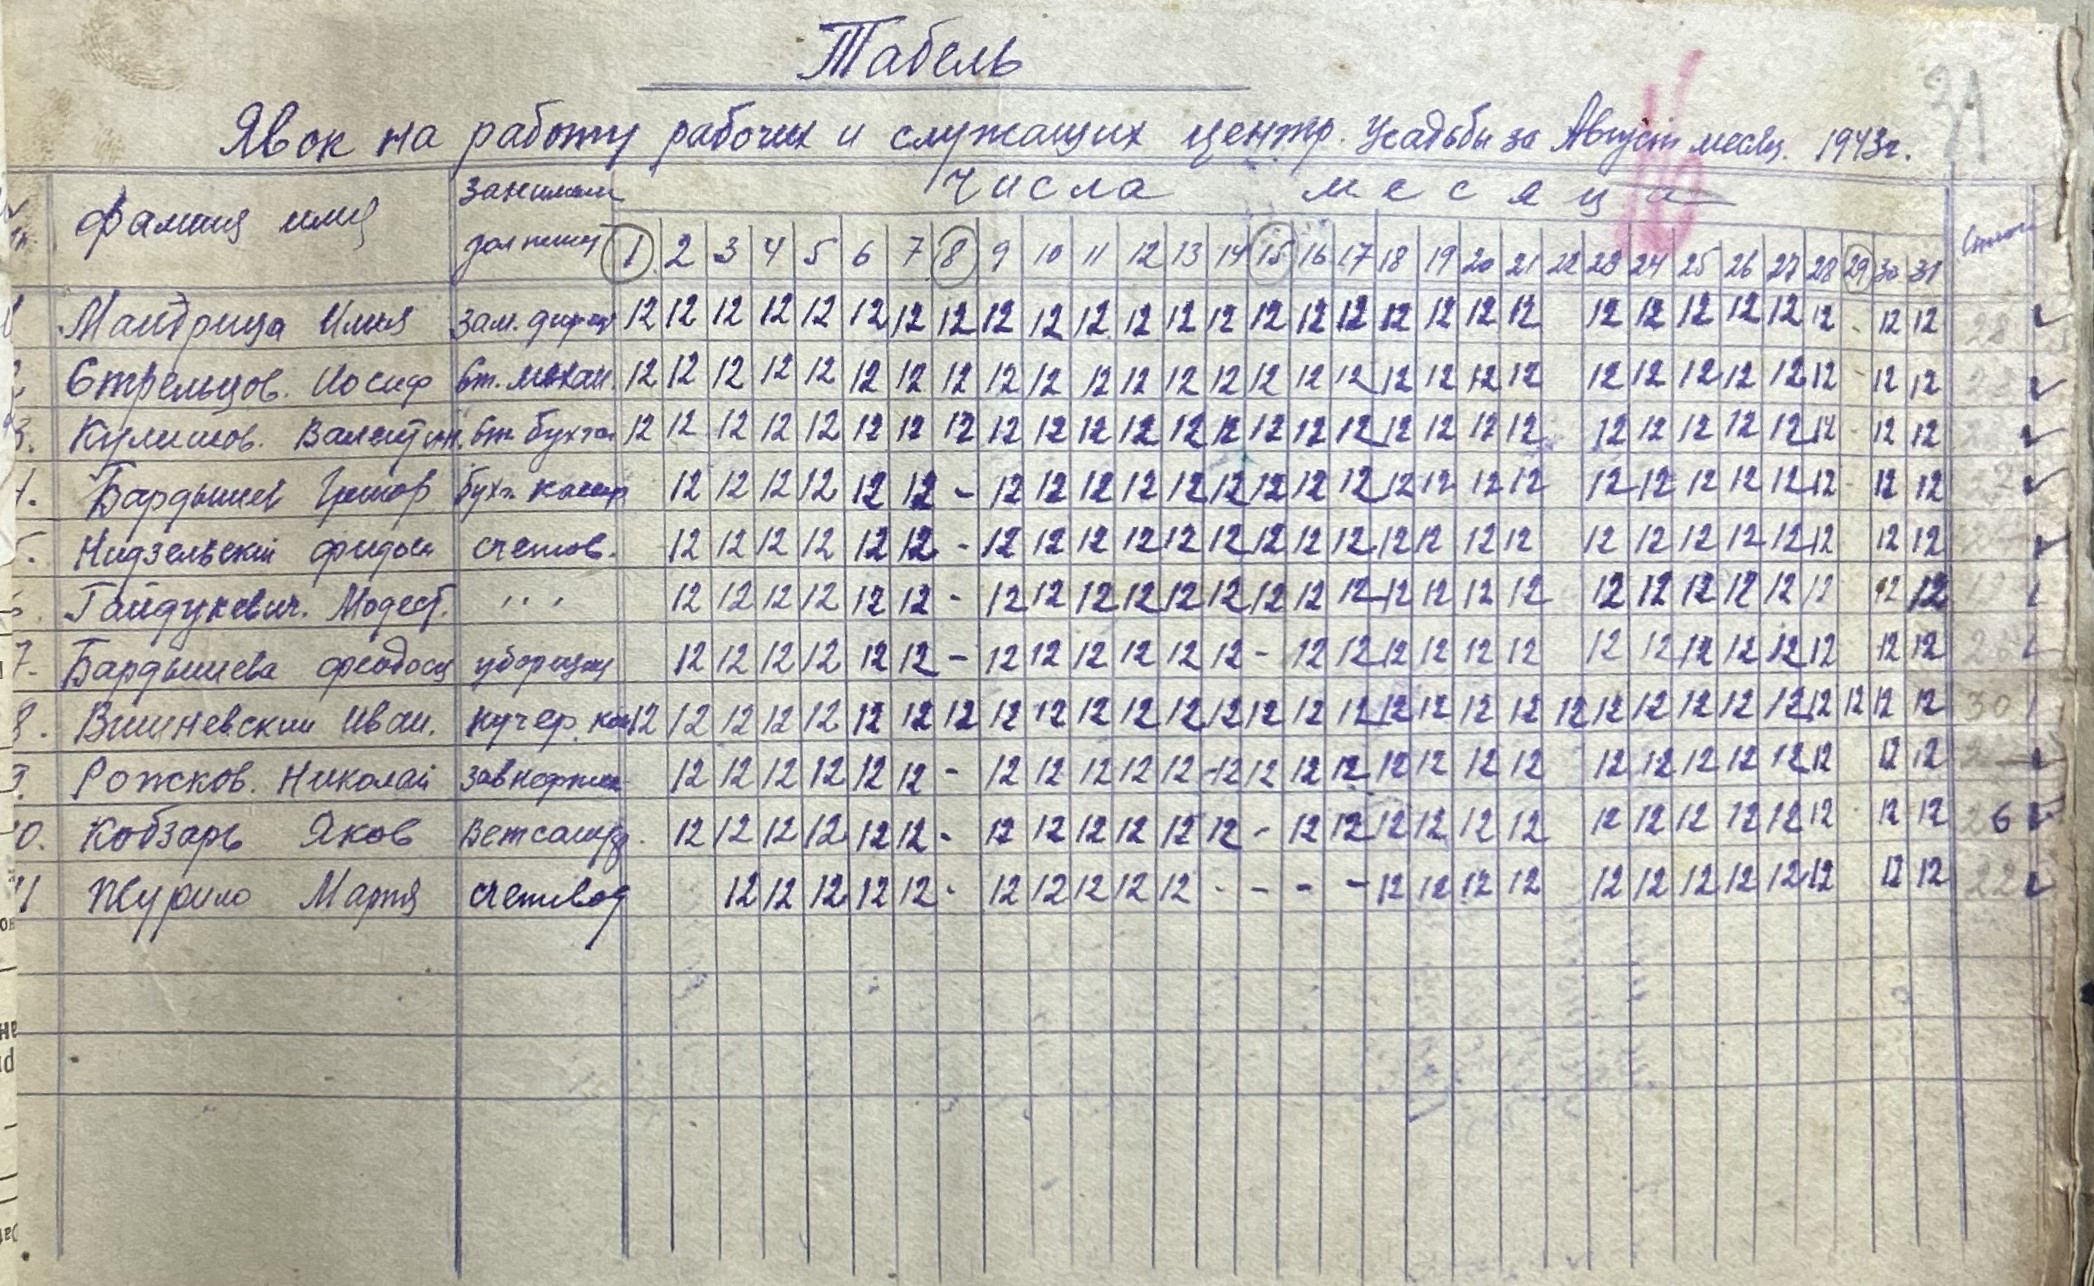 21
Табель
Явок на работу рабочих и служащих центр. Усадьбы за Август месяц. 1943г.
Фамилия имя занимаем должност Числа месяца
1 2 3 4 5 6 7 8 9 10 11 12 13 14 15 16 17 18 19 20 21 22 23 24 25 26 27 28 29 30 31
Мандрица Илья зам. дирек 12 12 12 12 12 12 12 12 12 12 12 12 12 12 12 12 12 12 12 12 12 12 12 12 12 12 12 - 12 12 28
Стрельцов. Иосиф Ст. механ. 12 12 12 12 12 12 12 12 12 12 12 12 12 12 12 12 12 12 12 12 12 12 12 12 12 12 12 - 12 12
3. Кулишов. Валентин. Ст. бухгал 12 12 12 12 12 12 12 12 12 12 12 12 12 12 12 12 12 12 12 12 12 12 12 12 12 12 12 - 12 12
4. Бардышев Григор бухг. кассир 12 12 12 12 12 12 - 12 12 12 12 12 12 12 12 12 12 12 12 12 12 12 12 12 12 12 - 12 12
5. Нидзельский счетов. 12 12 12 12 12 12 - 12 12 12 12 12 12 12 12 12 12 12 12 12 12 12 12 12 12 12 12 12
Гайдукевич. Модест. " 12 12 12 12 12 12 - 12 12 12 12 12 12 12 12 12 12 12 12 12 12 12 12 12 12 12 12 12
7. Бардышева Феодося уборщиц 12 12 12 12 12 12 - 12 12 12 12 12 12 - 12 12 12 12 12 12 12 12 12 12 12 12 12 12
8. Вишневский Иван. кучер. кон 12 12 12 12 12 12 12 12 12 12 12 12 12 12 12 12 12 12 12 12 12 12 12 12 12 12 12 12 12 12 12 30
9. Рожсков. Николай 12 12 12 12 12 12 - 12 12 12 12 12 12 12 12 12 12 12 12 12 12 12 12 12 12 12 12 12
10. Кобзарь Яков Ветсанит. 12 12 12 12 12 12 - 12 12 12 12 12 12 - 12 12 12 12 12 12 12 12 12 12 12 12 12 12 26
11 Журило Мария счетовод 12 12 12 12 12 - 12 12 12 12 12 - - - - 12 12 12 12 12 12 12 12 12 12 12 12 22